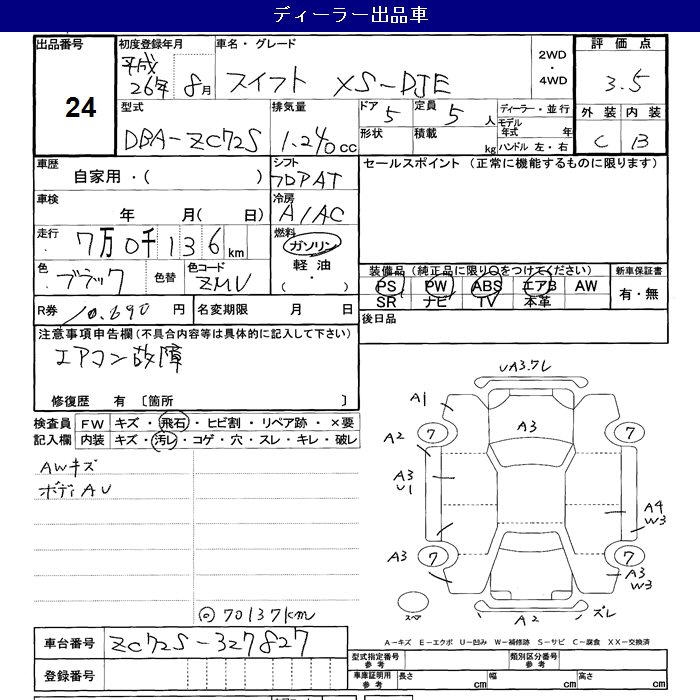 ディーラー出品車
出品番号 初度登録年月 車名・グレード 2WD・4WD 評価点
24 平成26年 8月 スイフト XS-DJE 3.5
型式 排気量 ドア 5 定員 5 人 ディーラー・並行 外装 内装
DBA-ZC72S 1.240cc 形状 積載 kg モデル年式 年 C B
ハンドル 左・右
車歴 シフト セールスポイント (正常に機能するものに限ります)
自家用・( ) フロアAT
車検 冷房
年 月( 日) A/AC
走行 燃料
7万0千136km ガソリン
軽油
( ・ )
色 色替 色コード 装備品 (純正品に限り○をつけてください) 新車保証書
ブラック ZMV PS PW ABS エアB AW 有・無
SR ナビ TV 本革
R券 10.690 円 名変期限 月 日 後日品
注意事項申告欄 (不具合内容等は具体的に記入して下さい)
エアコン故障
修復歴 有 〔箇所 〕
検査員 FW キズ・飛石・ヒビ割・リペア跡・×要
記入欄 内装 キズ・汚レ・コゲ・穴・スレ・キレ・破レ
AWキズ
ボディAU
UA3.7レ
A1
A3
A2 7 7
A3
U1
A4
W3
A3 7 7
A3
W3
スペア A2 ズレ
◎70137km
A-キズ E-エクボ U-凹み W-補修跡 S-サビ C-腐食 XX-交換済
車台番号 ZC72S-327827
型式指定番号 参考 類別区分番号 参考
登録番号
車庫証明用 参考 長さ cm 幅 cm 高さ cm